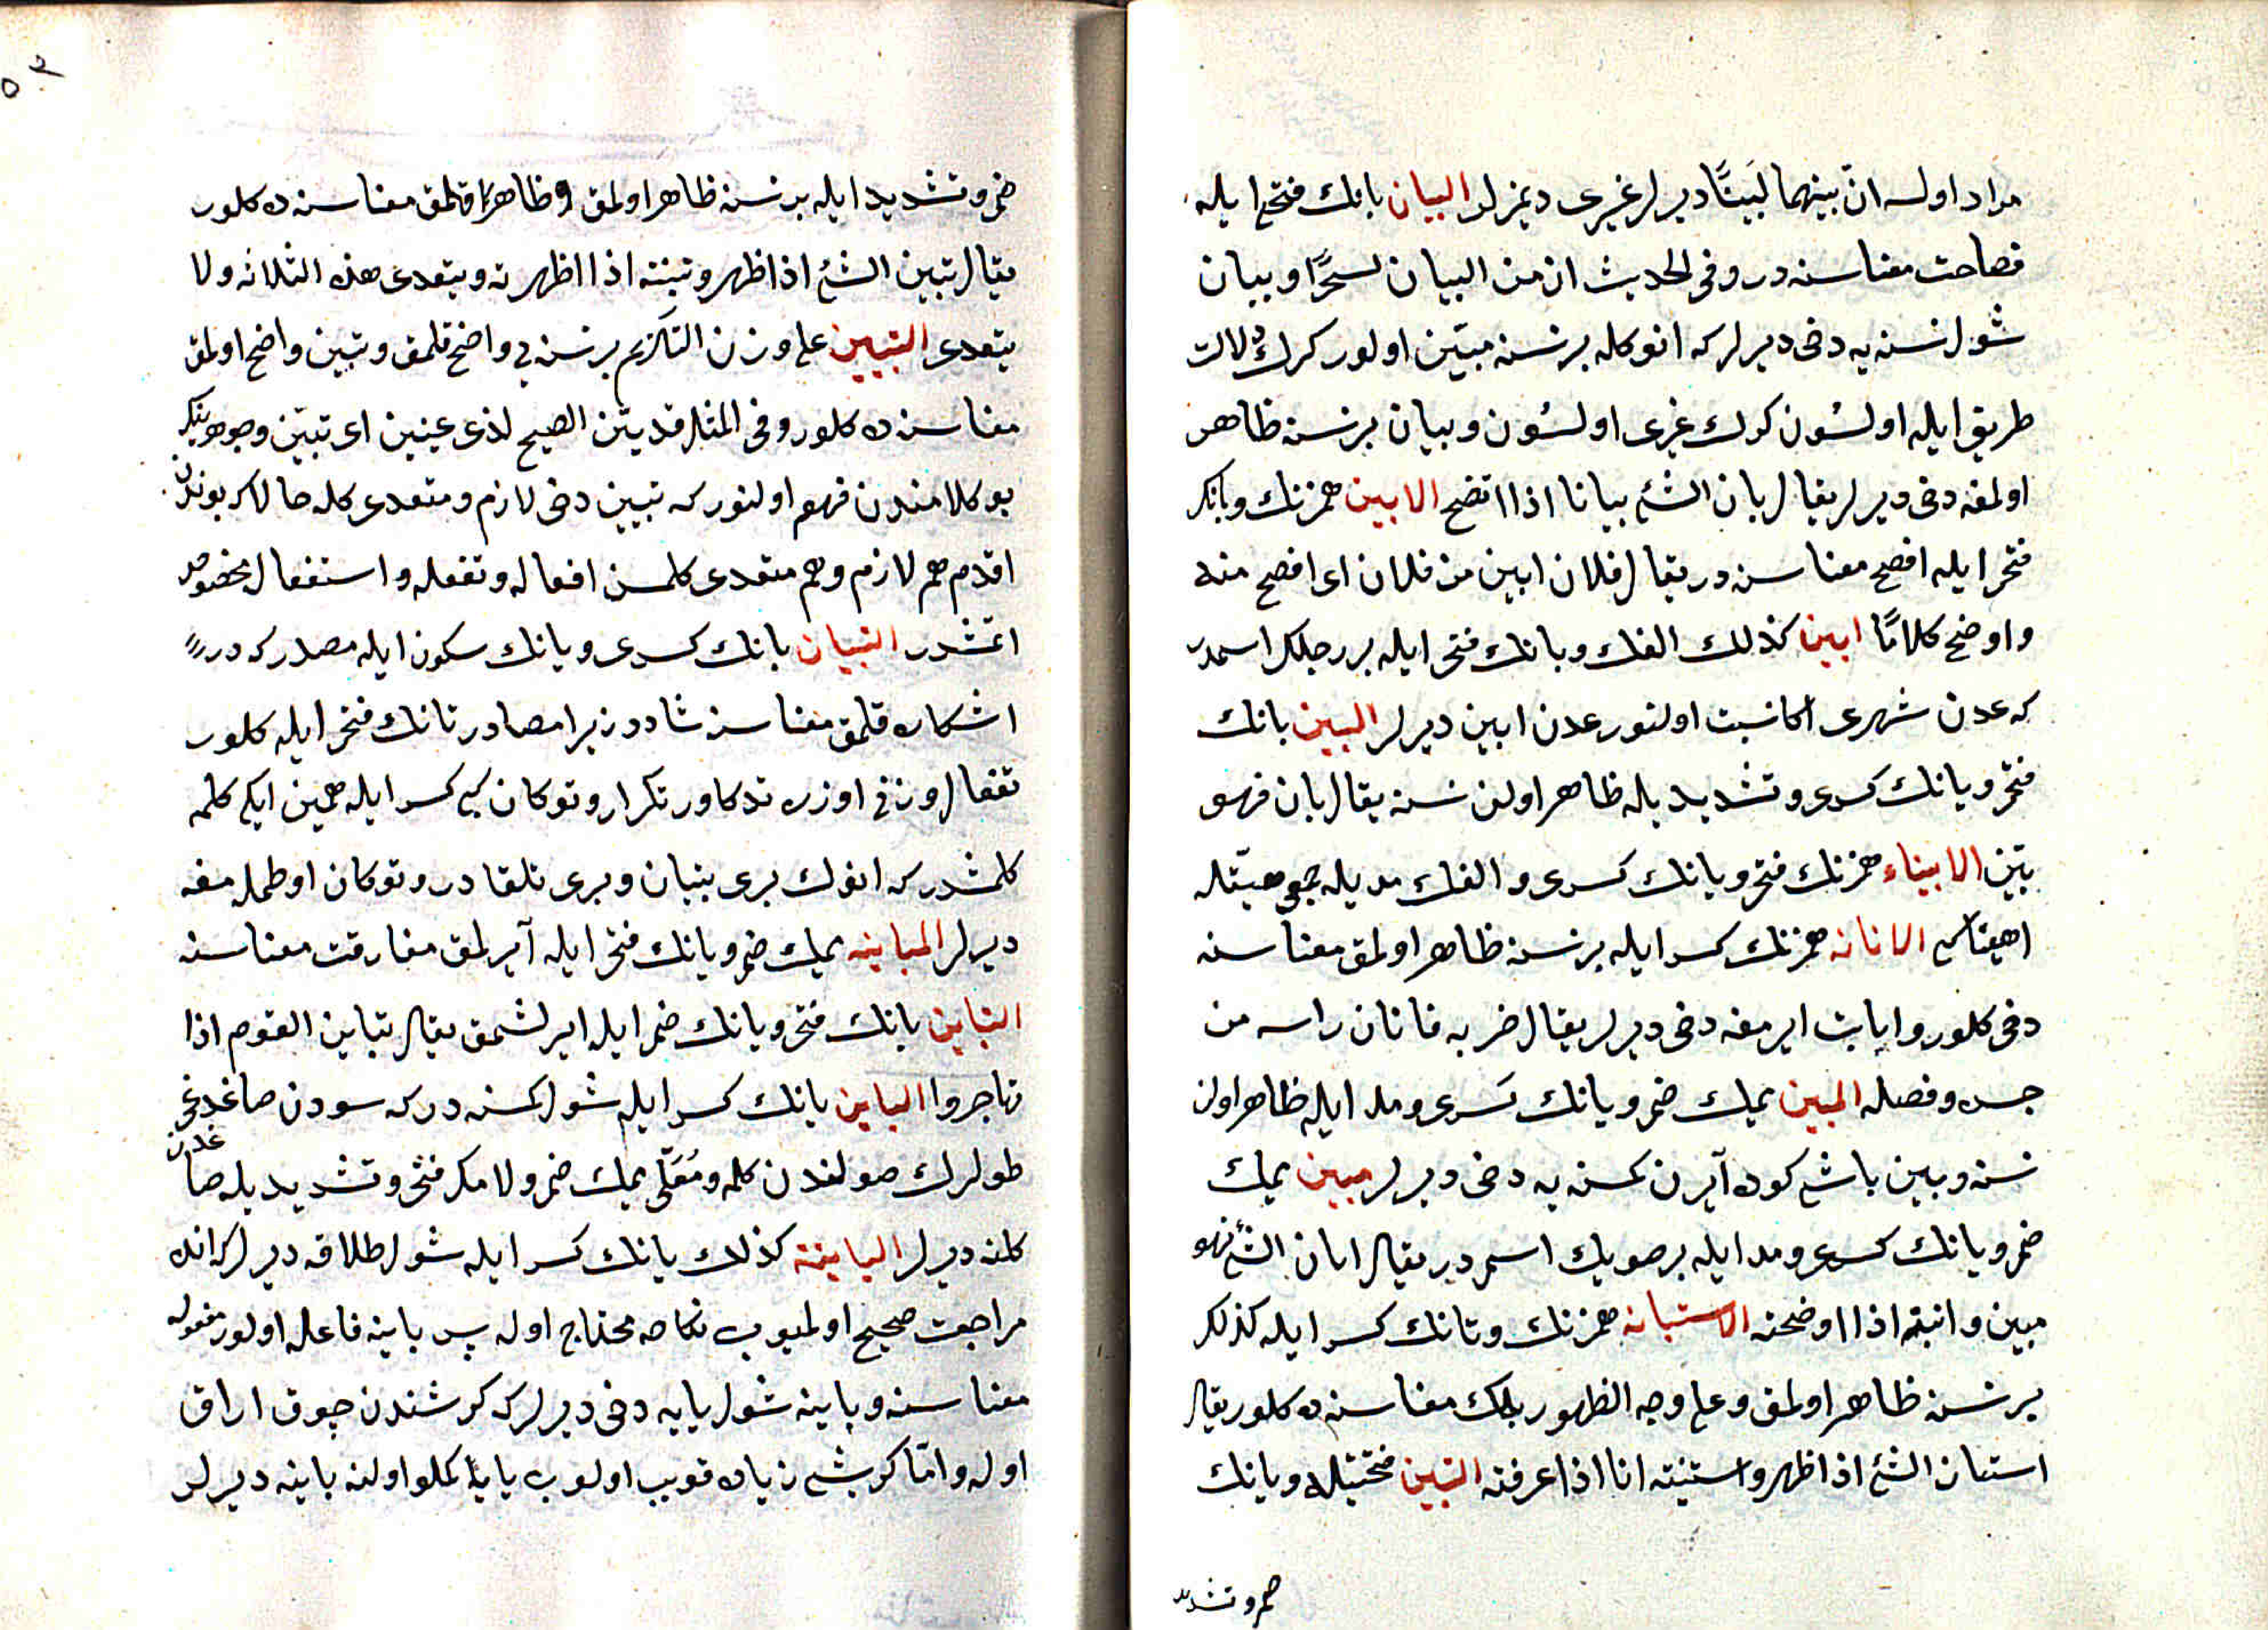 مراد اولسه انّ بينهما لبَينًا ديرلر غيرى ديمزلر البيان بانك فتحى ايله
فصاحت معناسنه در وفى الحديث ان من البيان لسحرًا وبيان
شول نسنه يه دخى ديرلر كه انوكله بر نسنه مبيّن اولور كرك دلالت
طريقى ايله اولسُون كرك غيرى اولسُون وبيان بر نسنه ظاهر
اولمغه دخى ديرلر يقال بان الشئ بيانا اذا اتضح الابين همزنك وبانك
فتحى ايله افصح معناسنه در يقال فلان ابين من فلان اى افصح منه
واوضح كلامًا ابين كذلك الفك وبانك فتحى ايله بر رجلك اسمدر
كه عدن شهرى اكا نسبت اولنور عدن ابين ديرلر البين بانك
فتحى ويانك كسرى وتشديديله ظاهر اولن نسنه يقال بان فهو
بيّن الابيناء همزنك فتحى ويانك كسرى والفك مديله جمعى هيّن ايله
اهيناء كبى الابانه همزنك كسرايله بر نسنه ظاهر اولمق معناسنه
دخى كلور وابانت ايرمغه دخى ديرلر يقال ضربه فابان راسه من
جسده وفصله المبين ميمك ضمى ويانك كسرى ومد ايله ظاهر اولن
نسنه ومبين باشى كوده دن آيرن كمسنه يه دخى ديرلر مبين ميمك
ضمى ويانك كسرى ومد ايله بر صويك اسمى در يقال ابان الشئ فهو
مبين وابنته اذا اوضحته الاستبانه همزنك وتانك كسرايله كذلك
بر نسنه ظاهر اولمق وعلى وجه الظهور بلمك معناسنه ده كلور يقال
استبان الشئ اذا ظهر واستبنته انا اذا عرفته التبين فتحتيله ويانك
ضمى وتشديد
ضمى وتشديد ايله بر نسنه ظاهر اولمق و ظاهر قلمق معناسنه ده كلور
يقال تبين الشئ اذا ظهر وتبينته اذا اظهرته ويتعدى هذه الثلاثه ولا
يتعدى التبيين على وزن التكريم بر نسنه يى واضح قلمق وتبيين واضح اولمق
معناسنه ده كلور وفى المثل قد بيّن الصبح لذى عينين اى تبيّن وجوهرينك
بو كلامندن فهم اولنور كه تبيين دخى لازم ومتعدى كله حالا كه بوندن
اقدم هم لازم وهم متعدى كلمسن افعاله وتفعله واستفعاله مخصوص
اتمشدر التبيان تانك كسرى وبانك سكون ايله مصدر كه در
اشكاره قلمق معناسنه شاددر زيرا مصادر تانك فتحى ايله كلور
تفعال وزنى اوزره تذكار وتكرار وتوكاف كبى كسر ايله همين ايكى كلمه
كلمشدر كه انوك برى تبيان وبرى تلقادر وتوكاف اوطملمغه
ديرلر المباينه ميمك ضمى ويانك فتحى ايله آيرلمق مفارقت معناسنه
التباين تانك فتحى ويانك ضمى ايله ايرلشمق يقال تباين القوم اذا
تهاجروا الباين يانك كسرايله شول كمسنه در كه سودن صاغدغى
طولرك صولندن كله ومُعَلّى ميمك ضمى ولامك فتحى وتشديديله صاغندن
كلنه ديرلر الباينه كذلك يانك كسرايله شول طلاقه ديرلر كه انده
مراجعت صحيح اولميوب نكاحه محتاج اوله پس باينه فاعله اولور مفعوله
معناسنه وباينه شول يايه دخى ديرلر كه كرشندن چوق اراق
اوله وامّا كرشى زياده قريب اولوب يايه ايكلو اولنه باينه ديرلر